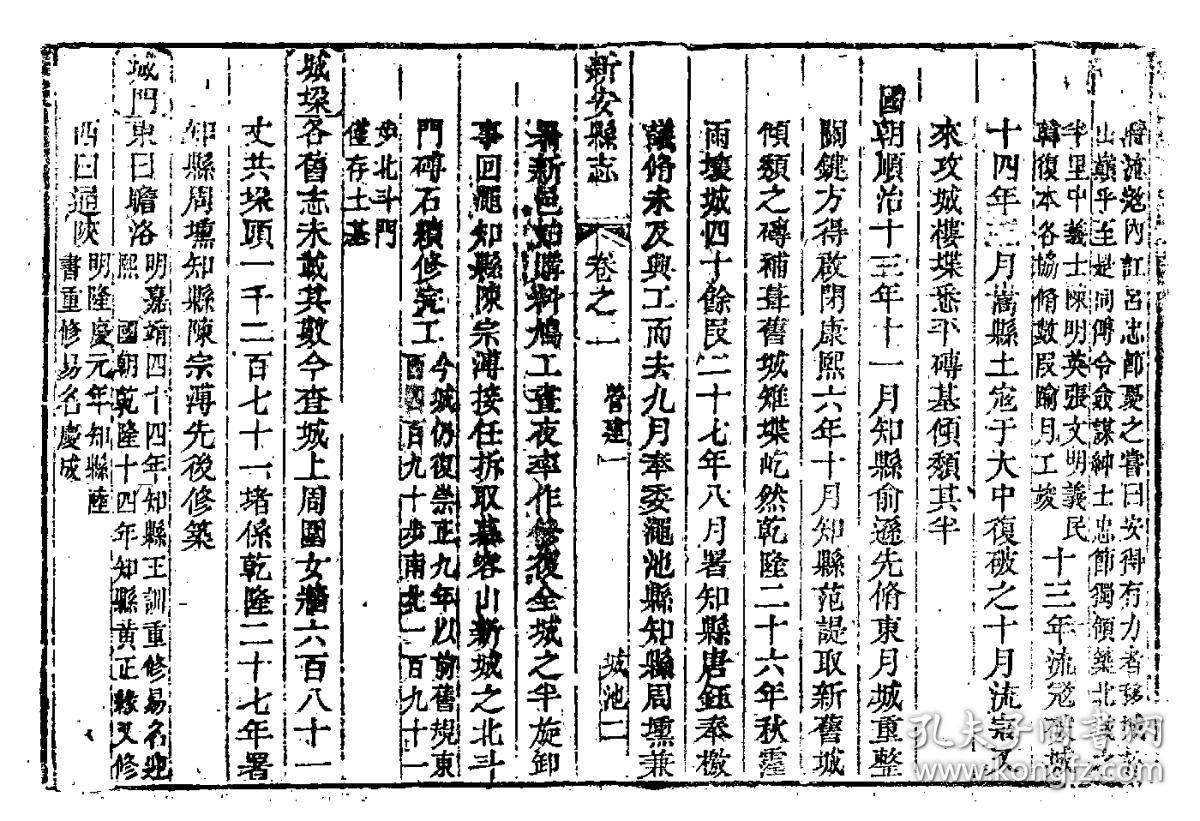 將流寇內訌呂忠節憂之嘗曰安得有力者移城於
山巔乎至是同傅令僉謀紳士忠節獨領築北城之
半里中義士陳明英張文明義民
韓復本各協脩數段踰月工竣
十三年流寇破城
十四年三月嵩縣土寇于大中復破之十月流寇又
來攻城樓堞悉平磚基傾頹其半
國朝順治十三年十一月知縣俞遜先脩東月城重整
關鍵方得啟閉康熙六年十月知縣范諟取新舊城
傾頹之磚補葺舊城雉堞屹然乾隆二十六年秋霪
雨壞城四十餘段二十七年八月署知縣唐鈺奉檄
議脩未及興工而去九月奉委澠池縣知縣周壎兼
署新邑始購料鳩工晝夜率作修復全城之半旋卸
事回澠知縣陳宗溥接任拆取慕容山新城之北斗
門磚石續修完工
今城仍復崇正九年以前舊規東
西四百九十步南北一百九十一
步北斗門
僅存土基
城垛各舊志未載其數今查城上周圍女牆六百八十一
丈共垛頭一千二百七十一堵係乾隆二十七年署
卸縣周壎知縣陳宗溥先後修築
城門東曰瞻洛
明嘉靖四十四年知縣王訓重修易名迎
熙 國朝乾隆十四年知縣黃正緣又修
西曰通陝
明隆慶元年知縣陸
書重修易名慶成
新安縣志
卷之二
營建
城池二
孔夫子舊書网
www.kongfz.com